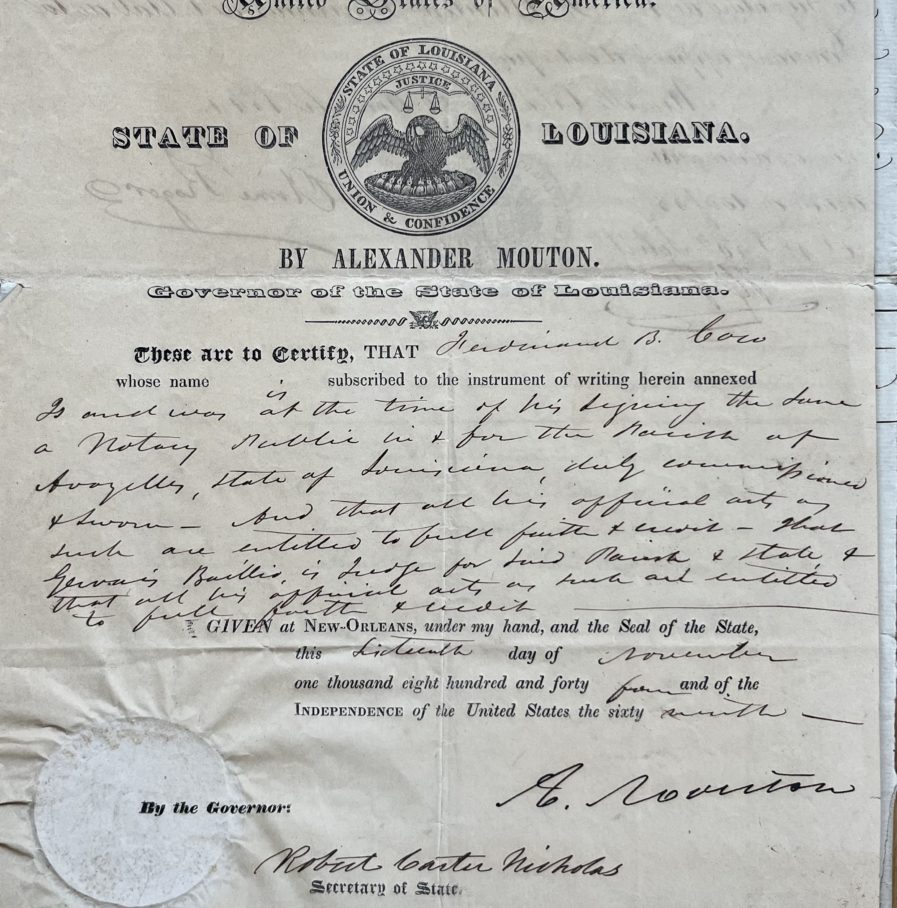 United States of America.
STATE OF LOUISIANA
JUSTICE
UNION & CONFIDENCE
STATE OF LOUISIANA.
BY ALEXANDER MOUTON.
Governor of the State of Louisiana.
These are to Certify, THAT Ferdinand B. Coco
whose name is subscribed to the instrument of writing herein annexed
Is and was at the time of his signing the same
a Notary Public in & for the Parish of
Avoyelles, State of Louisiana, duly commissioned
& sworn – And that all his official acts as
such are entitled to full faith & credit – That
Gervais Baillio, is Judge for said Parish & State &
that all his official acts as such are entitled
to full faith & credit
GIVEN at NEW-ORLEANS, under my hand, and the Seal of the State,
this Sixteenth day of November
one thousand eight hundred and forty four and of the
INDEPENDENCE of the United States the sixty ninth –
A. Mouton
By the Governor:
Robert Carter Nicholas
Secretary of State.